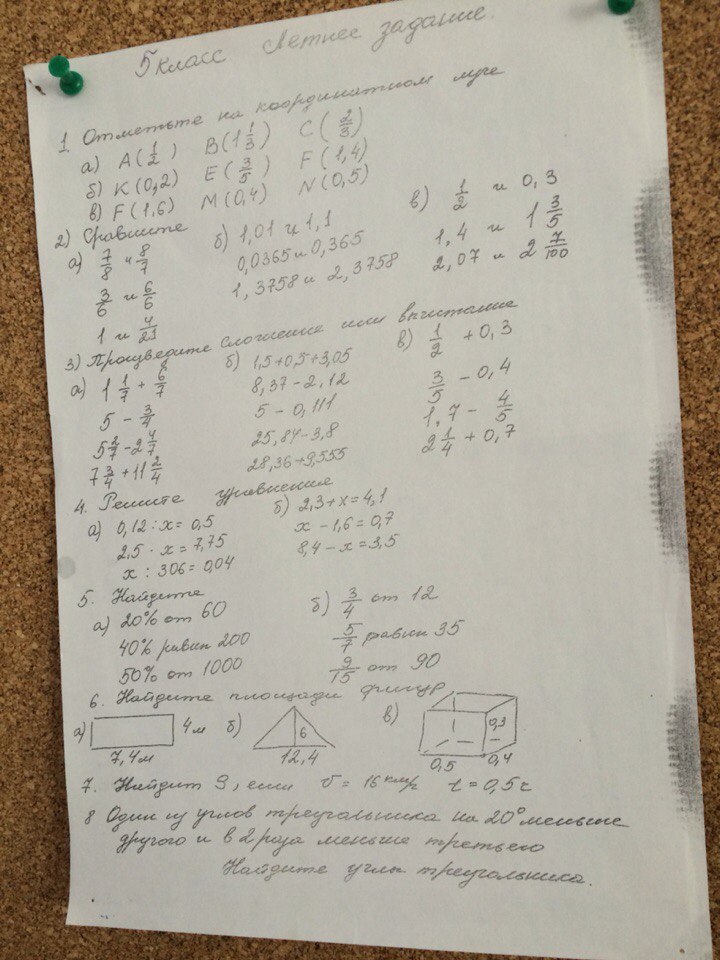 5 класс Летнее задание.
1. Отметьте на координатном луче
а) А(1/2) В(1 1/3) С(2/3)
б) К(0,2) Е(3/5) F(1,4)
в) F(1,6) М(0,4) N(0,5)
2) Сравните
а) 7/8 и 8/7 б) 1,01 и 1,1 в) 1/2 и 0,3
3/6 и 6/6 0,0365 и 0,365 1,4 и 1 3/5
1 и 4/21 1,3758 и 2,3758 2,07 и 2 7/100
3) Произведите сложение или вычитание
а) 1 1/7 + 6/7 б) 1,5+0,5+3,05 в) 1/2 + 0,3
5 - 3/4 8,37-2,12 3/5 - 0,4
5 2/7 - 2 4/7 5 - 0,111 1,7 - 4/5
7 3/4 + 11 2/4 25,84-3,8 2 1/4 + 0,7
28,36+9,555
4. Решите уравнения
а) 0,12 : х = 0,5 б) 2,3+х=4,1
2,5 · х = 7,75 х - 1,6 = 0,7
х : 306 = 0,04 8,4 - х = 3,5
5. Найдите
а) 20% от 60 б) 3/4 от 12
40% равен 200 5/7 равен 35
50% от 1000 9/15 от 90
6. Найдите площади фигур
а) 4м б) 6 в) 0,3
7,4м 12,4 0,5 0,4
7. Найдит S, если v = 16 км/ч t = 0,5 г
8 Один из углов треугольника на 20° меньше
другого и в 2 раза меньше третьего
Найдите углы треугольника.